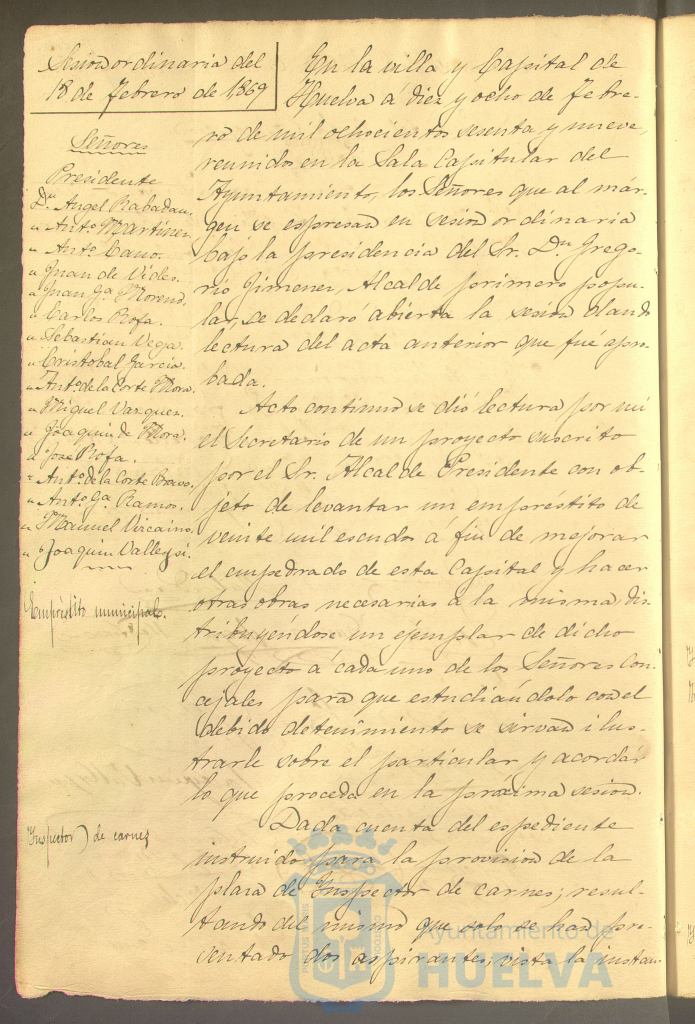 Sesion ordinaria del
18 de Febrero de 1869
Señores
Presidente
Dn. Angel Rabadan.
" Anto. Martinez.
" Anto. Cano.
" Juan de Vides.
" Juan Ga. Moreno.
" Carlos Rofa.
" Sebastian Vega.
" Cristobal Garcia.
" Anto. de la Corte Mora.
" Miguel Vazquez.
" Joaquin de Mora.
" Jose Rofa.
" Anto. de la Corte Bravo.
" Anto. Ga. Ramos.
" Manuel Vizcaino.
" Joaquin Vallepsi.
Empréstito municipal.
Inspector de carnes
En la villa y Capital de
Huelva á diez y ocho de Febre-
ro de mil ochocientos sesenta y nueve,
reunidos en la Sala Capitular del
Ayuntamiento, los Señores que al már-
gen se espresan en sesion ordinaria
bajo la presidencia del Sr. Dn. Grego-
rio Jimenez, Alcalde primero popu-
lar, se declaró abierta la sesion dando
lectura del acta anterior que fué apro-
bada.
Acto continuo se dió lectura por mi
el Secretario de un proyecto suscrito
por el Sr. Alcalde Presidente con ob-
jeto de levantar un empréstito de
veinte mil escudos á fin de mejorar
el empedrado de esta Capital y hacer
otras obras necesarias a la misma, dis-
tribuyéndose un ejemplar de dicho
proyecto á cada uno de los Señores Con-
cejales para que estudiándolo con el
debido detenimiento se sirvan ilus-
trarle sobre el particular y acordar
lo que proceda en la proxima sesion.
Dada cuenta del espediente
instruido para la provision de la
plaza de Inspector de carnes; resul-
tando del mismo que solo se han pre-
sentado dos aspirantes; vista la instan-
Ayuntamiento de
HUELVA